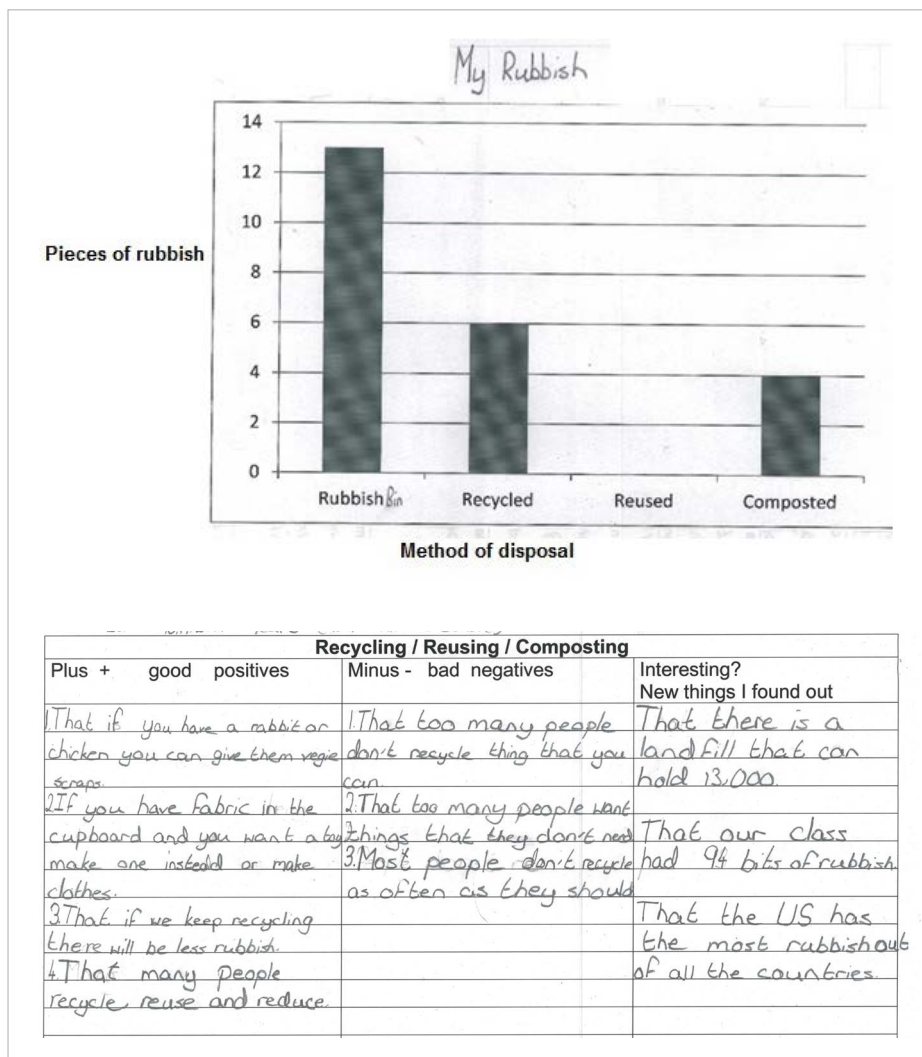 My Rubbish
14
12
10
8
6
4
2
0
Pieces of rubbish
Rubbish Bin
Recycled
Reused
Composted
Method of disposal
Recycling / Reusing / Composting
Plus + good positives
1.That if you have a rabbit or
chicken you can give them vegie
scraps.
2If you have fabric in the
cupboard and you want a toy
make one instedd or make
clothes.
3.That if we keep recycling
there will be less rubbish.
4.That many people
recycle, reuse and reduce.
Minus - bad negatives
1.That too many people
don't recycle thing that you
can.
2.That too many people want
things that they don't need
3.Most people don't recycle
as often as they should
Interesting?
New things I found out
That there is a
landfill that can
hold 13,000.
That our class
had 94 bits of rubbish.
That the US has
the most rubbish out
of all the countries.